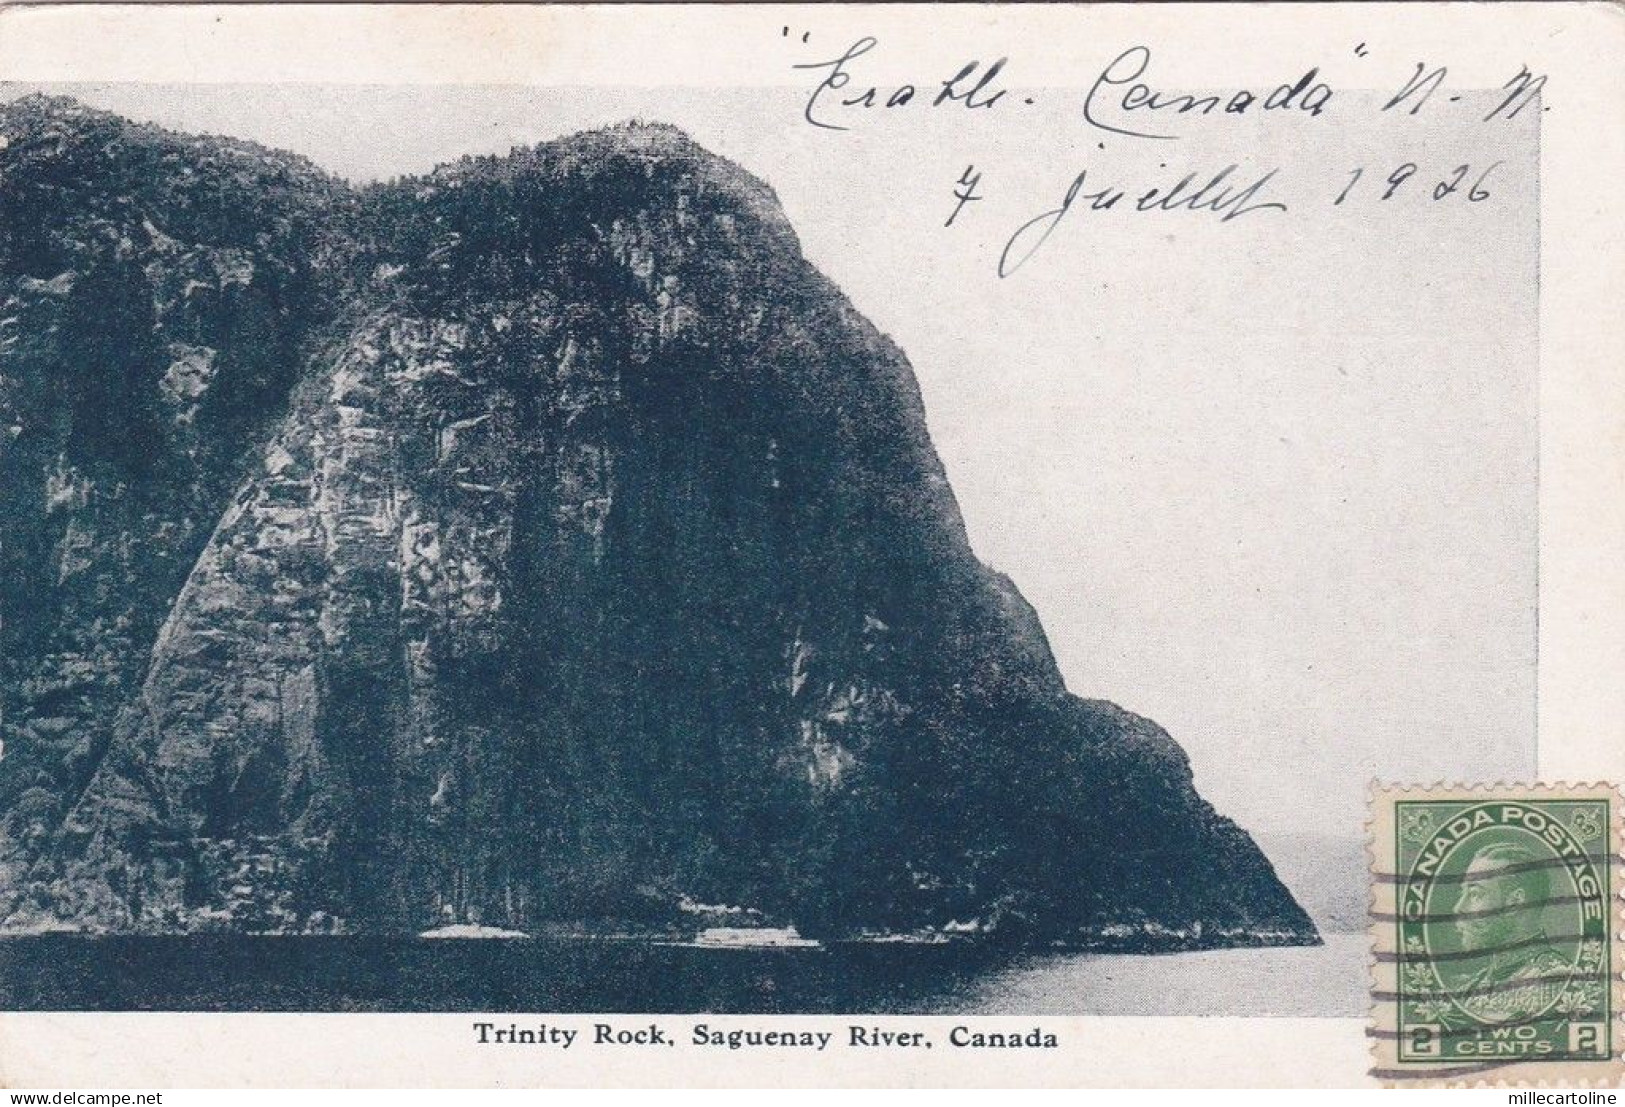 "Erable. Canada" N. N.
7 juillet 1926
CANADA POSTAGE
2 TWO CENTS 2
Trinity Rock, Saguenay River, Canada
delcampe.net
millecartoline